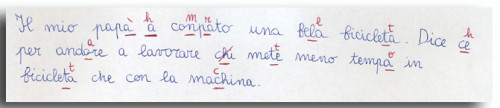 h m r l t h
Il mio papà à conpato una bela bicicleta. Dice ce
a t o
per andore a lavorare chi mete meno tempa in
t c
bicicleta che con la machina.